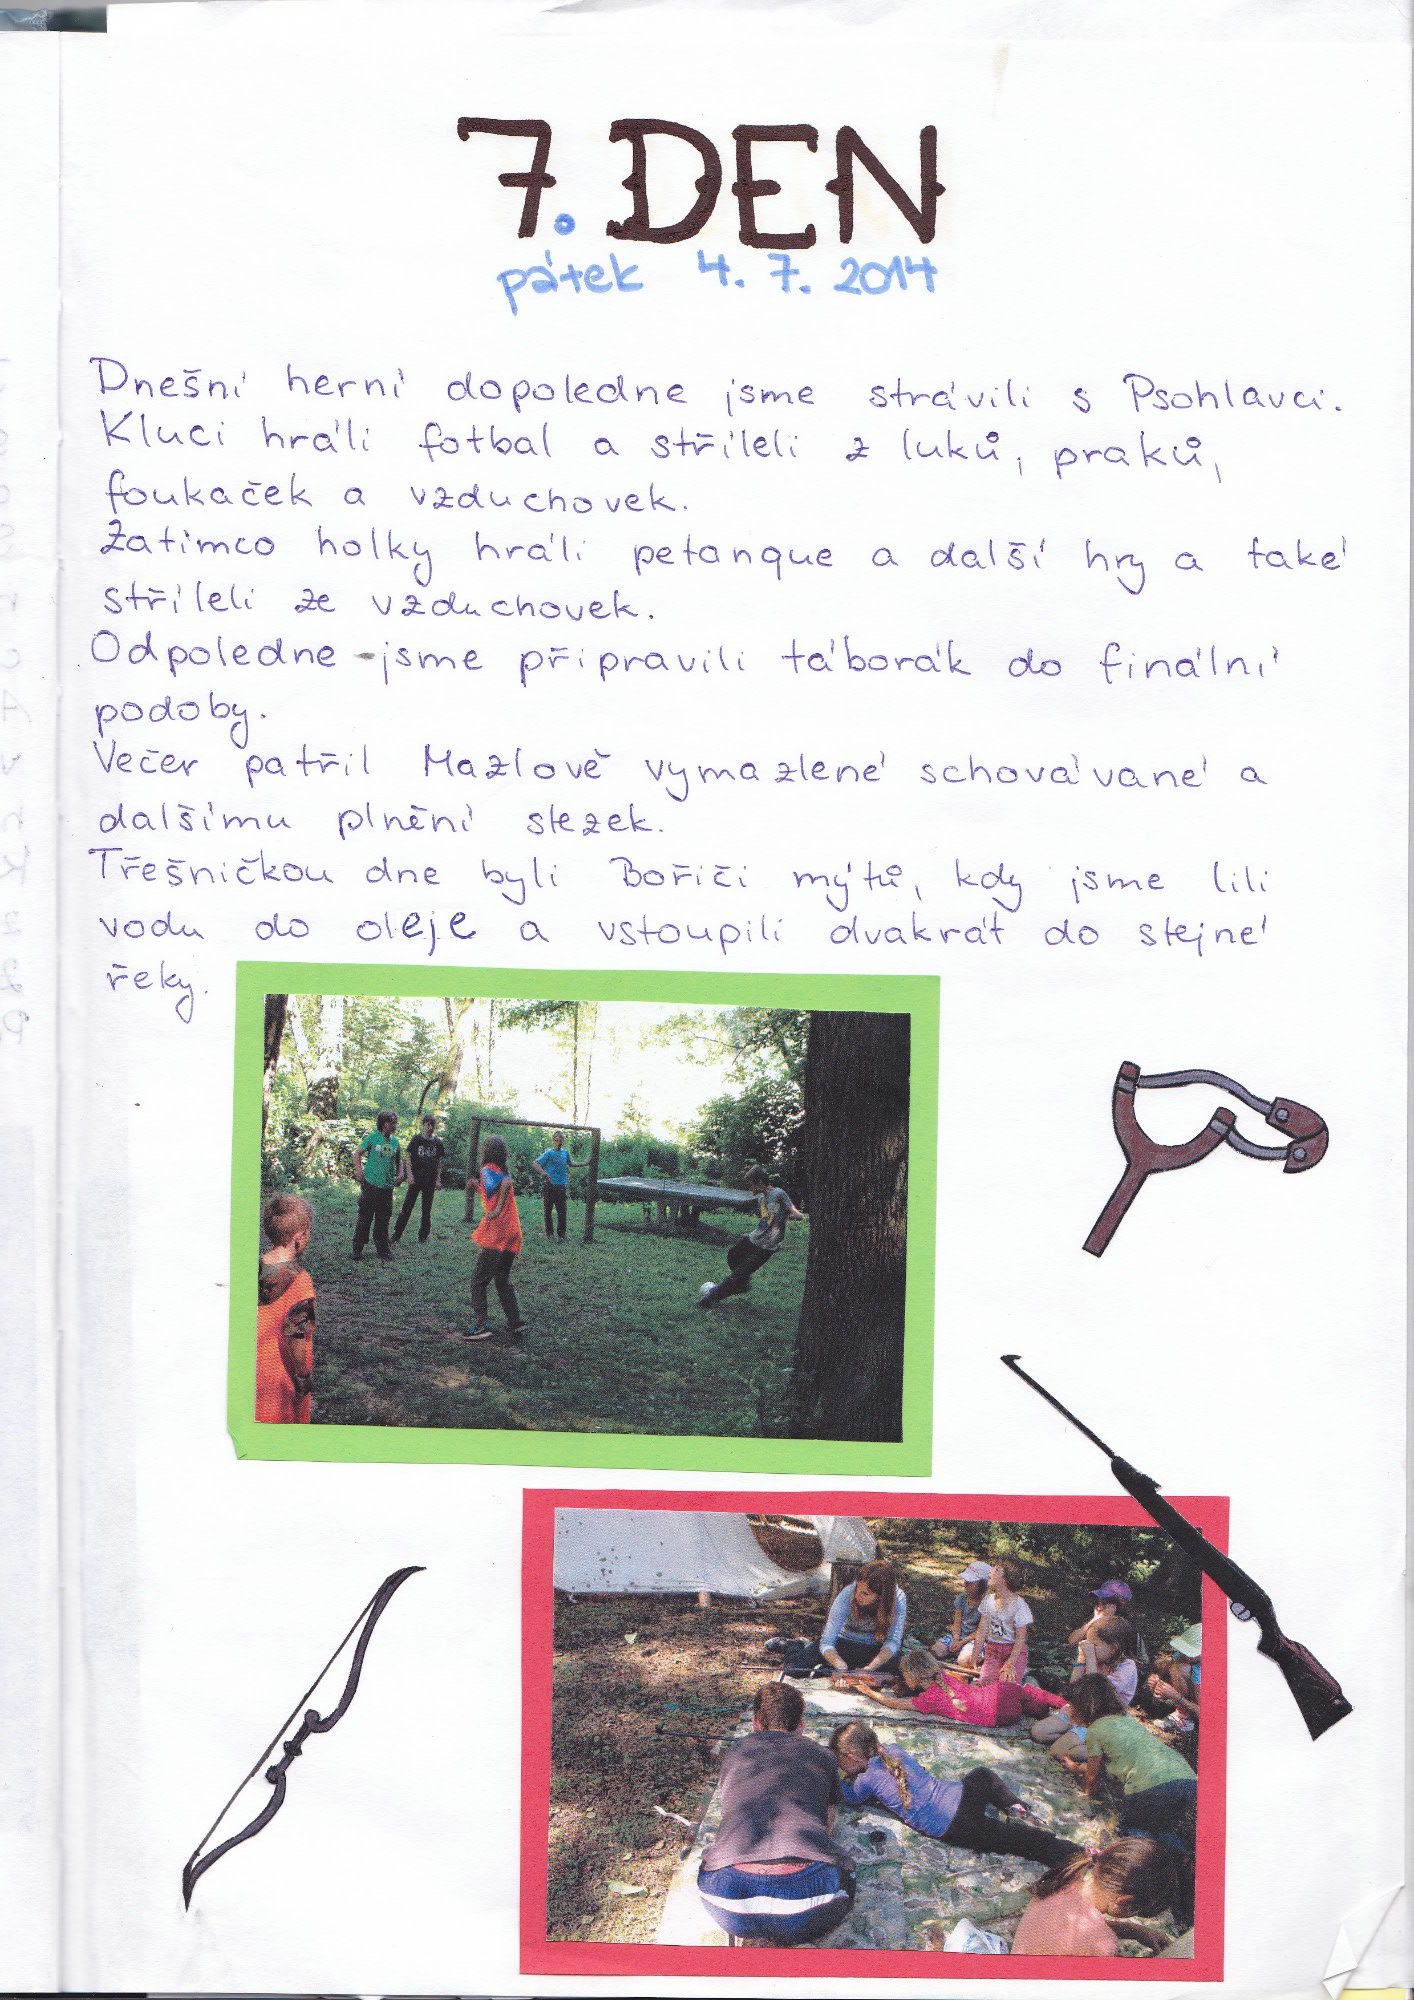 7. DEN
pátek 4. 7. 2014
Dnešní herní dopoledne jsme strávili s Psohlavci.
Kluci hráli fotbal a stříleli z luků, praků,
foukaček a vzduchovek.
Zatímco holky hráli petanque a další hry a také
stříleli ze vzduchovek.
Odpoledne jsme připravili táborák do finální
podoby.
Večer patřil Mazlově vymazlené schovávané a
dalšímu plnění stezek.
Třešničkou dne byli Bořiči mýtů, kdy jsme lili
vodu do oleje a vstoupili dvakrát do stejné
řeky.